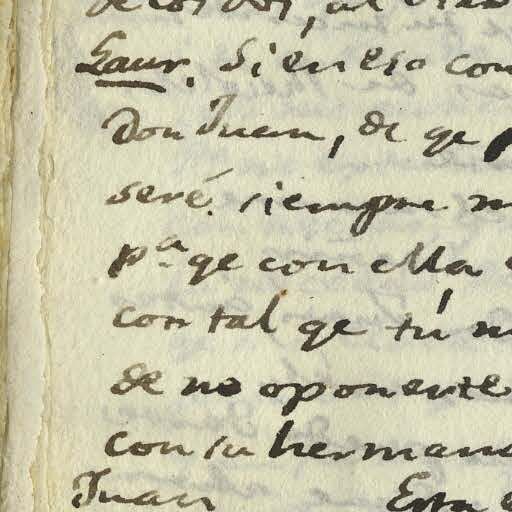 Laur. Si en eso con
Don Juan, de qe p
seré siempre m
pa. qe con ella
con tal qe tú m
de no oponerte
con su hermana
Juan Esta